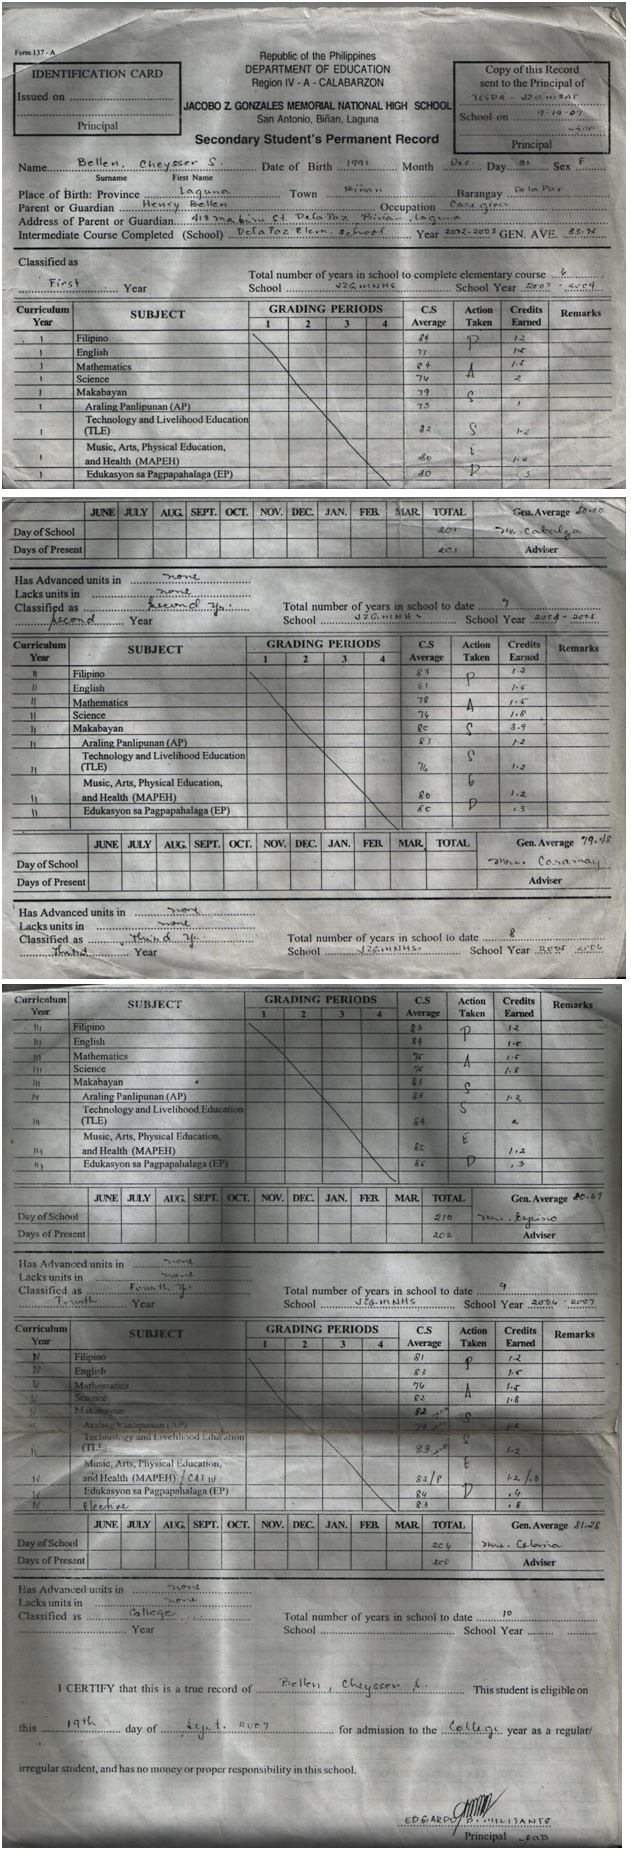 Form 137 - A
Republic of the Philippines
DEPARTMENT OF EDUCATION
Region IV - A - CALABARZON
JACOBO Z. GONZALES MEMORIAL NATIONAL HIGH SCHOOL
San Antonio, Biñan, Laguna
Secondary Student's Permanent Record
IDENTIFICATION CARD
Issued on
Principal
Copy of this Record
sent to the Principal of
School on 9-19-07
Principal
Name Bellen, Cheysser S. Date of Birth 1991 Month Dec. Day 31 Sex F
Surname First Name
Place of Birth: Province Laguna Town Biñan Barangay Dela Paz
Parent or Guardian Henry Bellen Occupation Caregiver
Address of Parent or Guardian St. Dela Paz Biñan, Laguna
Intermediate Course Completed (School) Dela Paz Elem. School Year 2002-2003 GEN. AVE.
Classified as
First Year
Total number of years in school to complete elementary course 6
School JZGMNHS School Year 2003 - 2004
Curriculum Year SUBJECT GRADING PERIODS 1 2 3 4 C.S Average Action Taken Credits Earned Remarks
1 Filipino 84 P 1.2
1 English 77 1.5
1 Mathematics A 1.5
1 Science 76 2
1 Makabayan 79 S
1 Araling Panlipunan (AP) 75 1
1 Technology and Livelihood Education (TLE) 82 S 1.2
1 Music, Arts, Physical Education, and Health (MAPEH) 80 E
1 Edukasyon sa Pagpapahalaga (EP) 80 D .3
JUNE JULY AUG. SEPT. OCT. NOV. DEC. JAN. FEB. MAR. TOTAL Gen. Average 80.00
Day of School 201
Days of Present 201 Adviser
Has Advanced units in none
Lacks units in none
Classified as Second Yr. Total number of years in school to date 7
Second Year School JZGMNHS School Year 2004 - 2005
Curriculum Year SUBJECT GRADING PERIODS 1 2 3 4 C.S Average Action Taken Credits Earned Remarks
II Filipino 83 P 1.2
II English 81 1.5
II Mathematics 78 A 1.5
II Science 76 1.8
II Makabayan 80 S 3.9
II Araling Panlipunan (AP) 83 1.2
II Technology and Livelihood Education (TLE) 76 S 1.2
II Music, Arts, Physical Education, and Health (MAPEH) 80 E 1.2
II Edukasyon sa Pagpapahalaga (EP) 80 D .3
JUNE JULY AUG. SEPT. OCT. NOV. DEC. JAN. FEB. MAR. TOTAL Gen. Average 79.48
Day of School Mrs. Casamay
Days of Present Adviser
Has Advanced units in none
Lacks units in none
Classified as Third Yr. Total number of years in school to date 8
Third Year School JZGMNHS School Year 2005 2006
Curriculum Year SUBJECT GRADING PERIODS 1 2 3 4 C.S Average Action Taken Credits Earned Remarks
III Filipino 83 P 1.2
III English 84 1.5
III Mathematics 75 A 1.5
III Science 75 1.8
III Makabayan 83
III Araling Panlipunan (AP) 83 S 1.2
III Technology and Livelihood Education (TLE) 84 S
III Music, Arts, Physical Education, and Health (MAPEH) E 1.2
III Edukasyon sa Pagpapahalaga (EP) D .3
JUNE JULY AUG. SEPT. OCT. NOV. DEC. JAN. FEB. MAR. TOTAL Gen. Average 80.67
Day of School 210 Mrs. Espino
Days of Present 202 Adviser
Has Advanced units in none
Lacks units in none
Classified as Fourth Yr. Total number of years in school to date 9
Fourth Year School JZGMNHS School Year 2006 - 2007
Curriculum Year SUBJECT GRADING PERIODS 1 2 3 4 C.S Average Action Taken Credits Earned Remarks
IV Filipino 81 P 1.2
IV English 83 1.5
IV Mathematics 76 A 1.5
IV Science 82 1.8
Makabayan 82 S
Araling Panlipunan (AP) 1.2
IV Technology and Livelihood Education (TLE) 83 S 1.2
IV Music, Arts, Physical Education, and Health (MAPEH) / CAT IV 82/P E 1.2 / .3
IV Edukasyon sa Pagpapahalaga (EP) 84 D .4
IV Elective 83 .8
JUNE JULY AUG. SEPT. OCT. NOV. DEC. JAN. FEB. MAR. TOTAL Gen. Average 81.28
Day of School 206
Days of Present Adviser
Has Advanced units in none
Lacks units in none
Classified as College Total number of years in school to date 10
Year School School Year
I CERTIFY that this is a true record of Bellen, Cheysser S. This student is eligible on
this 19th day of Sept. 2007 for admission to the College year as a regular/
irregular student, and has no money or proper responsibility in this school.
EDGARDO MILITANTE
Principal